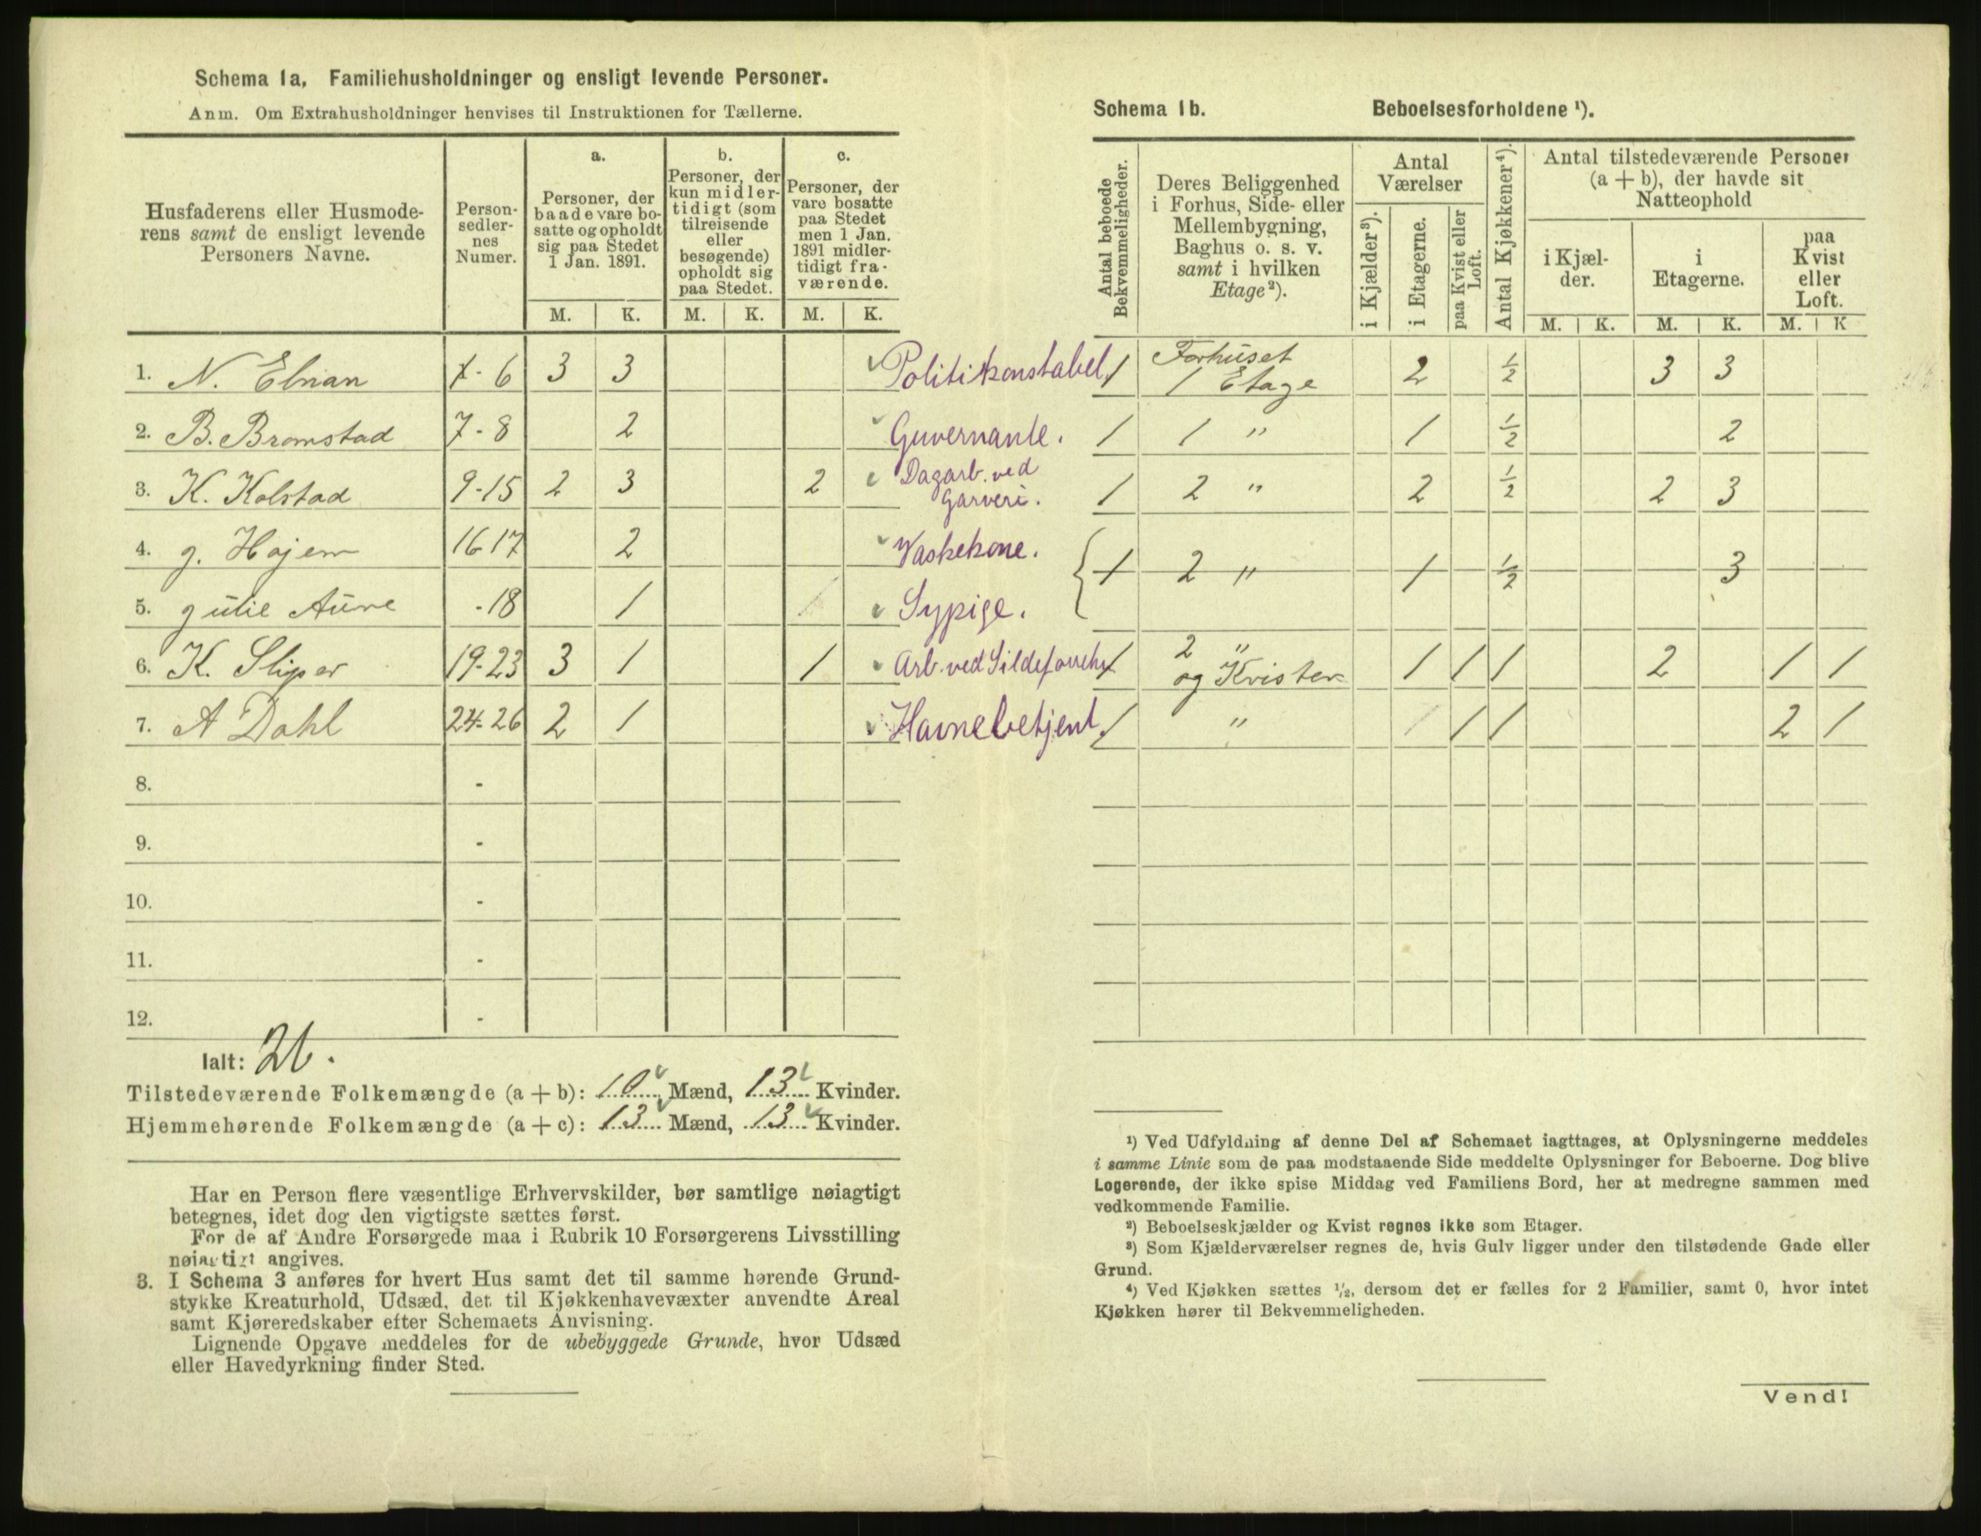 Schema 1a. Familiehusholdninger og ensligt levende Personer.
Anm. Om Extrahusholdninger henvises til Instruktionen for Tællerne.
Husfaderens eller Husmoderens samt de ensligt levende Personers Navne.
Personsedlernes Numer.
a. Personer, der baade vare bosatte og opholdt sig paa Stedet 1 Jan. 1891.
b. Personer, der kun midlertidigt (som tilreisende eller besøgende) opholdt sig paa Stedet.
c. Personer, der vare bosatte paa Stedet men 1 Jan. 1891 midlertidigt fraværende.
M. K. M. K. M. K.
1. N. 1-6 3 3 Politikonstabel.
2. B. Bromstad 7-8 2 Guvernante.
3. K. Kolstad 9-15 2 3 2 Dagarb. ved Garveri.
4. J. Hojem 16 17 2 Vaskekone.
5. Julie Aune -18 1 Sypige.
6. K. Sliper 19-23 3 1 1 Arb. ved
7. A Dahl 24-26 2 1 Havnebetjent.
8. -
9. -
10. -
11. -
12. -
Ialt: 26.
Tilstedeværende Folkemængde (a + b): 10 Mænd, 13 Kvinder.
Hjemmehørende Folkemængde (a + c): 13 Mænd, 13 Kvinder.
Har en Person flere væsentlige Erhvervskilder, bør samtlige nøiagtigt
betegnes, idet dog den vigtigste sættes først.
For de af Andre Forsørgede maa i Rubrik 10 Forsørgerens Livsstilling
nøiagtigt angives.
3. I Schema 3 anføres for hvert Hus samt det til samme hørende Grund-
stykke Kreaturhold, Udsæd, det til Kjøkkenhavevæxter anvendte Areal
samt Kjøreredskaber efter Schemaets Anvisning.
Lignende Opgave meddeles for de ubebyggede Grunde, hvor Udsæd
eller Havedyrkning finder Sted.
Schema 1b. Beboelsesforholdene ¹).
Antal beboede Bekvemmeligheder.
Deres Beliggenhed i Forhus, Side- eller Mellembygning, Baghus o. s. v. samt i hvilken Etage²).
Antal Værelser
i Kjælder³).
i Etagerne.
paa Kvist eller Loft.
Antal Kjøkkener⁴).
Antal tilstedeværende Personer (a + b), der havde sit Natteophold
i Kjælder.
i Etagerne.
paa Kvist eller Loft.
M. K. M. K. M. K
1 Forhuset 1 Etage 2 ½ 3 3
1 1 " 1 ½ 2
1 2 " 2 ½ 2 3
1 2 " 1 ½ 3
1 2 " og Kvisten 1 1 1 2 1 1
1 " 1 1 2 1
¹) Ved Udfyldning af denne Del af Schemaet iagttages, at Oplysningerne meddeles
i samme Linie som de paa modstaaende Side meddelte Oplysninger for Beboerne. Dog blive
Logerende, der ikke spise Middag ved Familiens Bord, her at medregne sammen med
vedkommende Familie.
²) Beboelseskjælder og Kvist regnes ikke som Etager.
³) Som Kjælderværelser regnes de, hvis Gulv ligger under den tilstødende Gade eller
Grund.
⁴) Ved Kjøkken sættes ½, dersom det er fælles for 2 Familier, samt 0, hvor intet
Kjøkken hører til Bekvemmeligheden.
Vend!